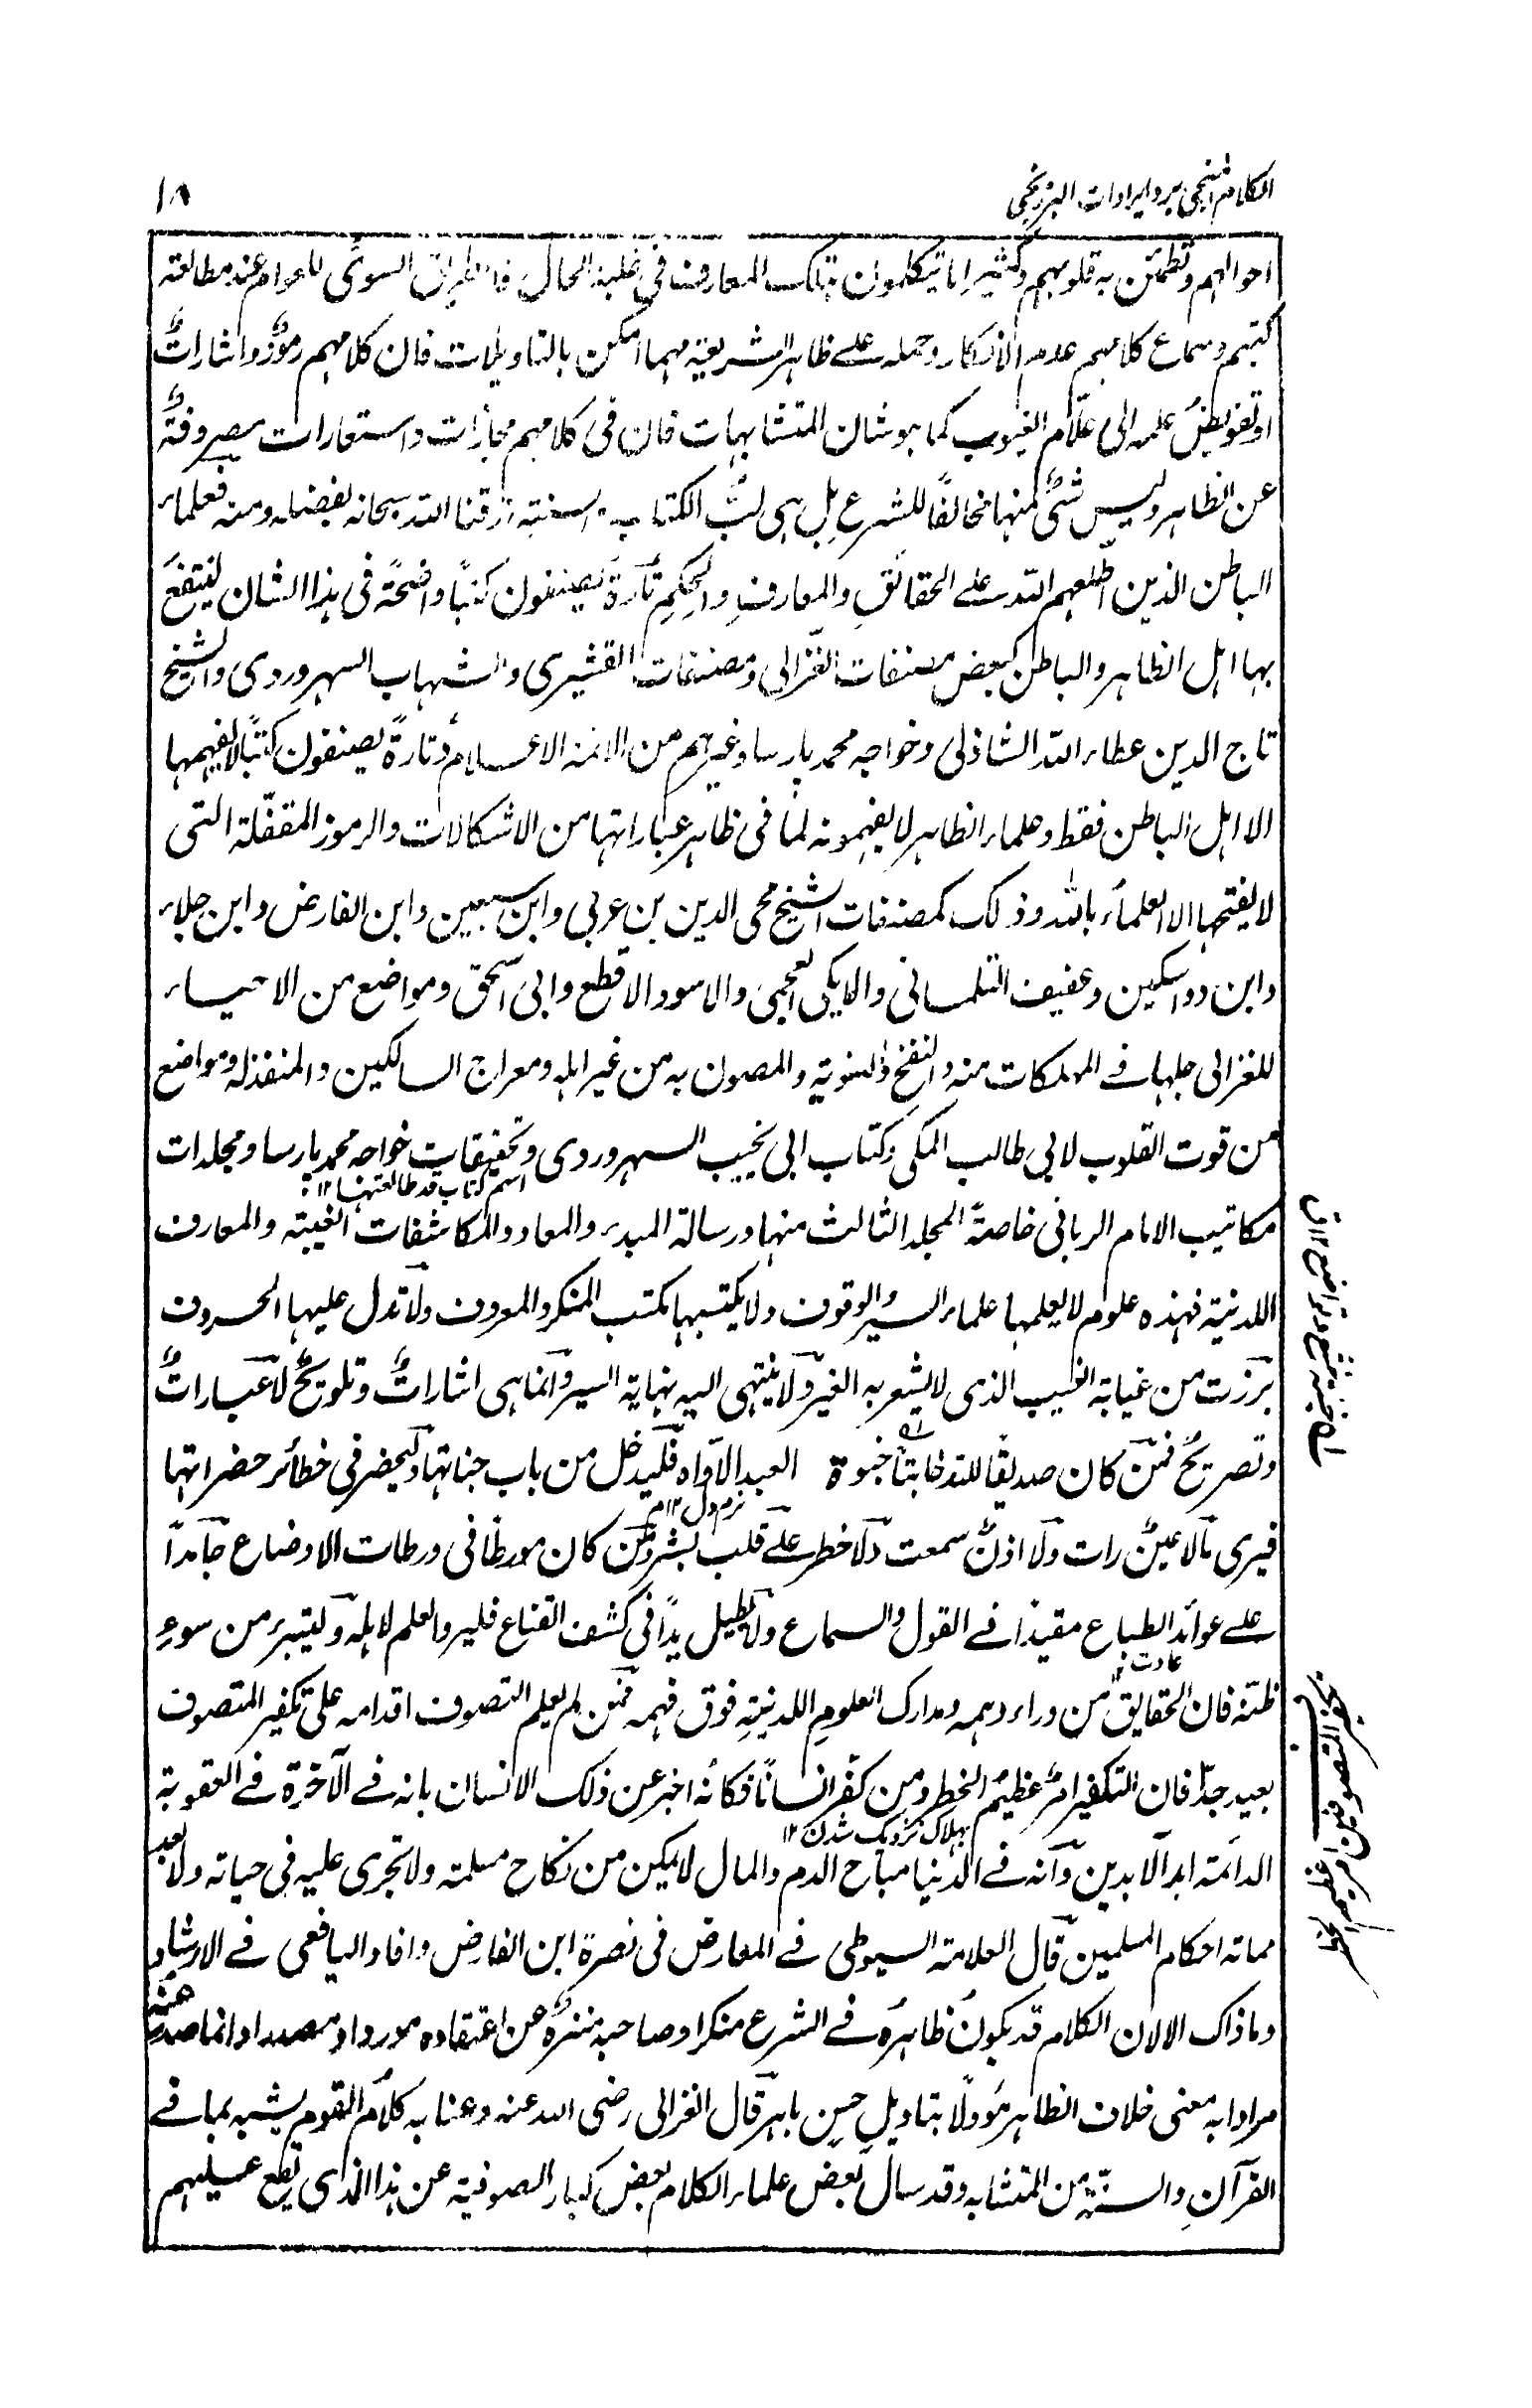 الکلام المنجی برد ایرادات البرزنجی
۱۸
احوالهم وتطمئن به قلوبهم وکثیرا ما یتکلمون بتلک المعارف فی غلبة الحال فالطریق السوی للعوام عند مطالعة
کتبهم وسماع کلامهم عدم الانکار وحمله علے ظاهر الشریعة مهما امکن بالتاویلات فان کلامهم رموزٌ واشاراتٌ
او تفویض علمه الی علّام الغیوب کما هو شان المتشابهات فان فی کلامهم مجازات واستعارات مصروفةٌ
عن الظاهر ولیس شیٌ منها مخالفًا للشرع بل هی لبُّ الکتاب والسنة رزقنا الله سبحانه بفضله ومنه فعلماء
الباطن الذین اطّلعهم الله علے الحقائقِ والمعارفِ والحِکمِ تارةً یصنفون کتبًا واضحةً فی هذا الشان لینتفعَ
بها اهل الظاهر والباطن کبعض مصنفات الغزالی ومصنفات القشیری والشهاب السهروردی والشیخ
تاج الدین عطاء الله الشاذلی وخواجه محمد پارسا وغیرهم من الائمة الاعلام وتارةً یصنفون کتبًا لا یفهمها
الا اهل الباطن فقط وعلماء الظاهر لا یفهمونه لما فی ظاهر عباراتها من الاشکالات والرموز المقفّلة التی
لا یفتحها الا العلماء بالله وذلک کمصنفات الشیخ محی الدین بن عربی وابن سبعین وابن الفارض وابن جلاء
وابن دواسکین وعفیف التلمسانی والایکی العجمی والاسود الاقطع وابی اسحق ومواضع من الاحیاء
للغزالی جلها فے المهلکات منه والنفخ والتسویة والمصون به من غیر اهله ومعراج السالکین والمنقذ له ومواضع
من قوت القلوب لابی طالب المکی وکتاب ابی نجیب السهروردی وتحقیقات خواجه محمد پارسا ومجلدات
اسم کتاب قد طالعتها ۱۲
مکاتیب الامام الربانی خاصةً المجلد الثالث منها ورسالة المبدء والمعاد والمکاشفات الغیبة والمعارف
اللدنیة فهذه علوم لا یعلمها علماء السیر والوقوف ولا یکتبها مکتب المنکر والمعروف ولا تدل علیها الحروف
برزت من غیابة الغیب الذی لا یشعر به الغیر ولا ینتهی الیه نهایة السیر وانما هی اشاراتٌ وتلویحٌ لا عباراتٌ
وتصریحٌ فمن کان صدیقا لله خابتا خبوة العبد الاواه فلیدخل من باب جناتها ولیحضر فی خطائر حضراتها
نرم دل ۱۲
فیری ما لا عینٌ رات ولا اذنٌ سمعت ولا خطر علے قلب بشر ومن کان مورطًا فی ورطات الاوضاع جامدًا
علے عوائد الطباع مقیدا فے القول والسماع ولا یطیل یدًا فی کشف القناع فلیرد العلم لاهله ولیتبرء من سوءِ
عادت
ظنّه فان الحقایق من وراء وهمه ومدارک العلوم اللدنیةِ فوق فهمه فمن لم یعلم التصوف اقدامه علی تکفیر المتصوف
بعید جدّا فان التکفیر امرٌ عظیم الخطر ومن کفّر انسانًا فکانه اخبر عن ذلک الانسان بانه فے الآخرة فے العقوبة
بهلاک نزدیک شدن ۱۲
الدائمة ابد الآبدین وانه فے الدنیا مباح الدم والمال لا یمکن من نکاح مسلمة ولا تجری علیه فی حیاته ولا بعد
مماته احکام المسلمین قال العلامة السیوطی فے المعارض فی نصرة ابن الفارض وافاد الیافعی فے الارشاد
وما ذاک الا لان الکلام قد یکون ظاهره فے الشرع منکرا وصاحبه منزهٌ عن اعتقاده موردا ومصدرا وانما صدر عنه
مرادا به معنی خلاف الظاهر مؤولًا بتاویلٍ حسن باهر قال الغزالی رضی الله عنه وعنا به کلام القوم یشبه بما فے
القرآنِ والسنّة من المتشابه وقد سال بعض علماء الکلام بعض کبار الصوفیة عن هذا الذی یقع علیهم